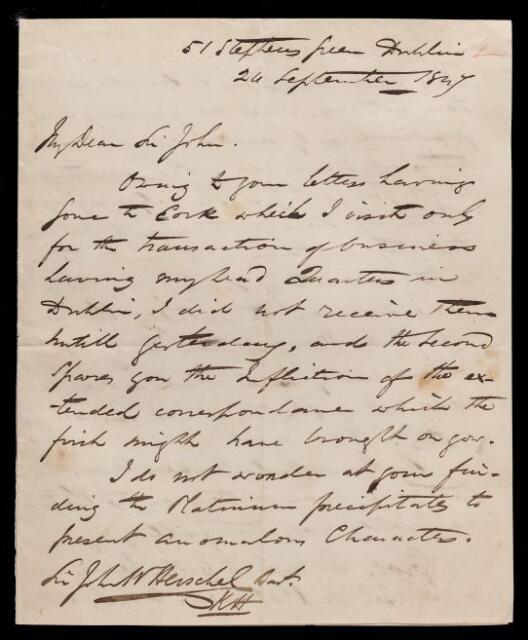 51 Stephens green Dublin
24 September 1847
My Dear Sir John.
Owing to your letters having
gone to Cork which I visit only
for the transaction of business
having my head Quarters in
Dublin, I did not receive them
untill yesterday, and the second
spares you the infliction of the ex-
-tended correspondance which the
first might have brought on you.
I do not wonder at your fin-
ding the Platinum precipitates to
present anomalous Character.
Sir John W Herschel Bart.
KH